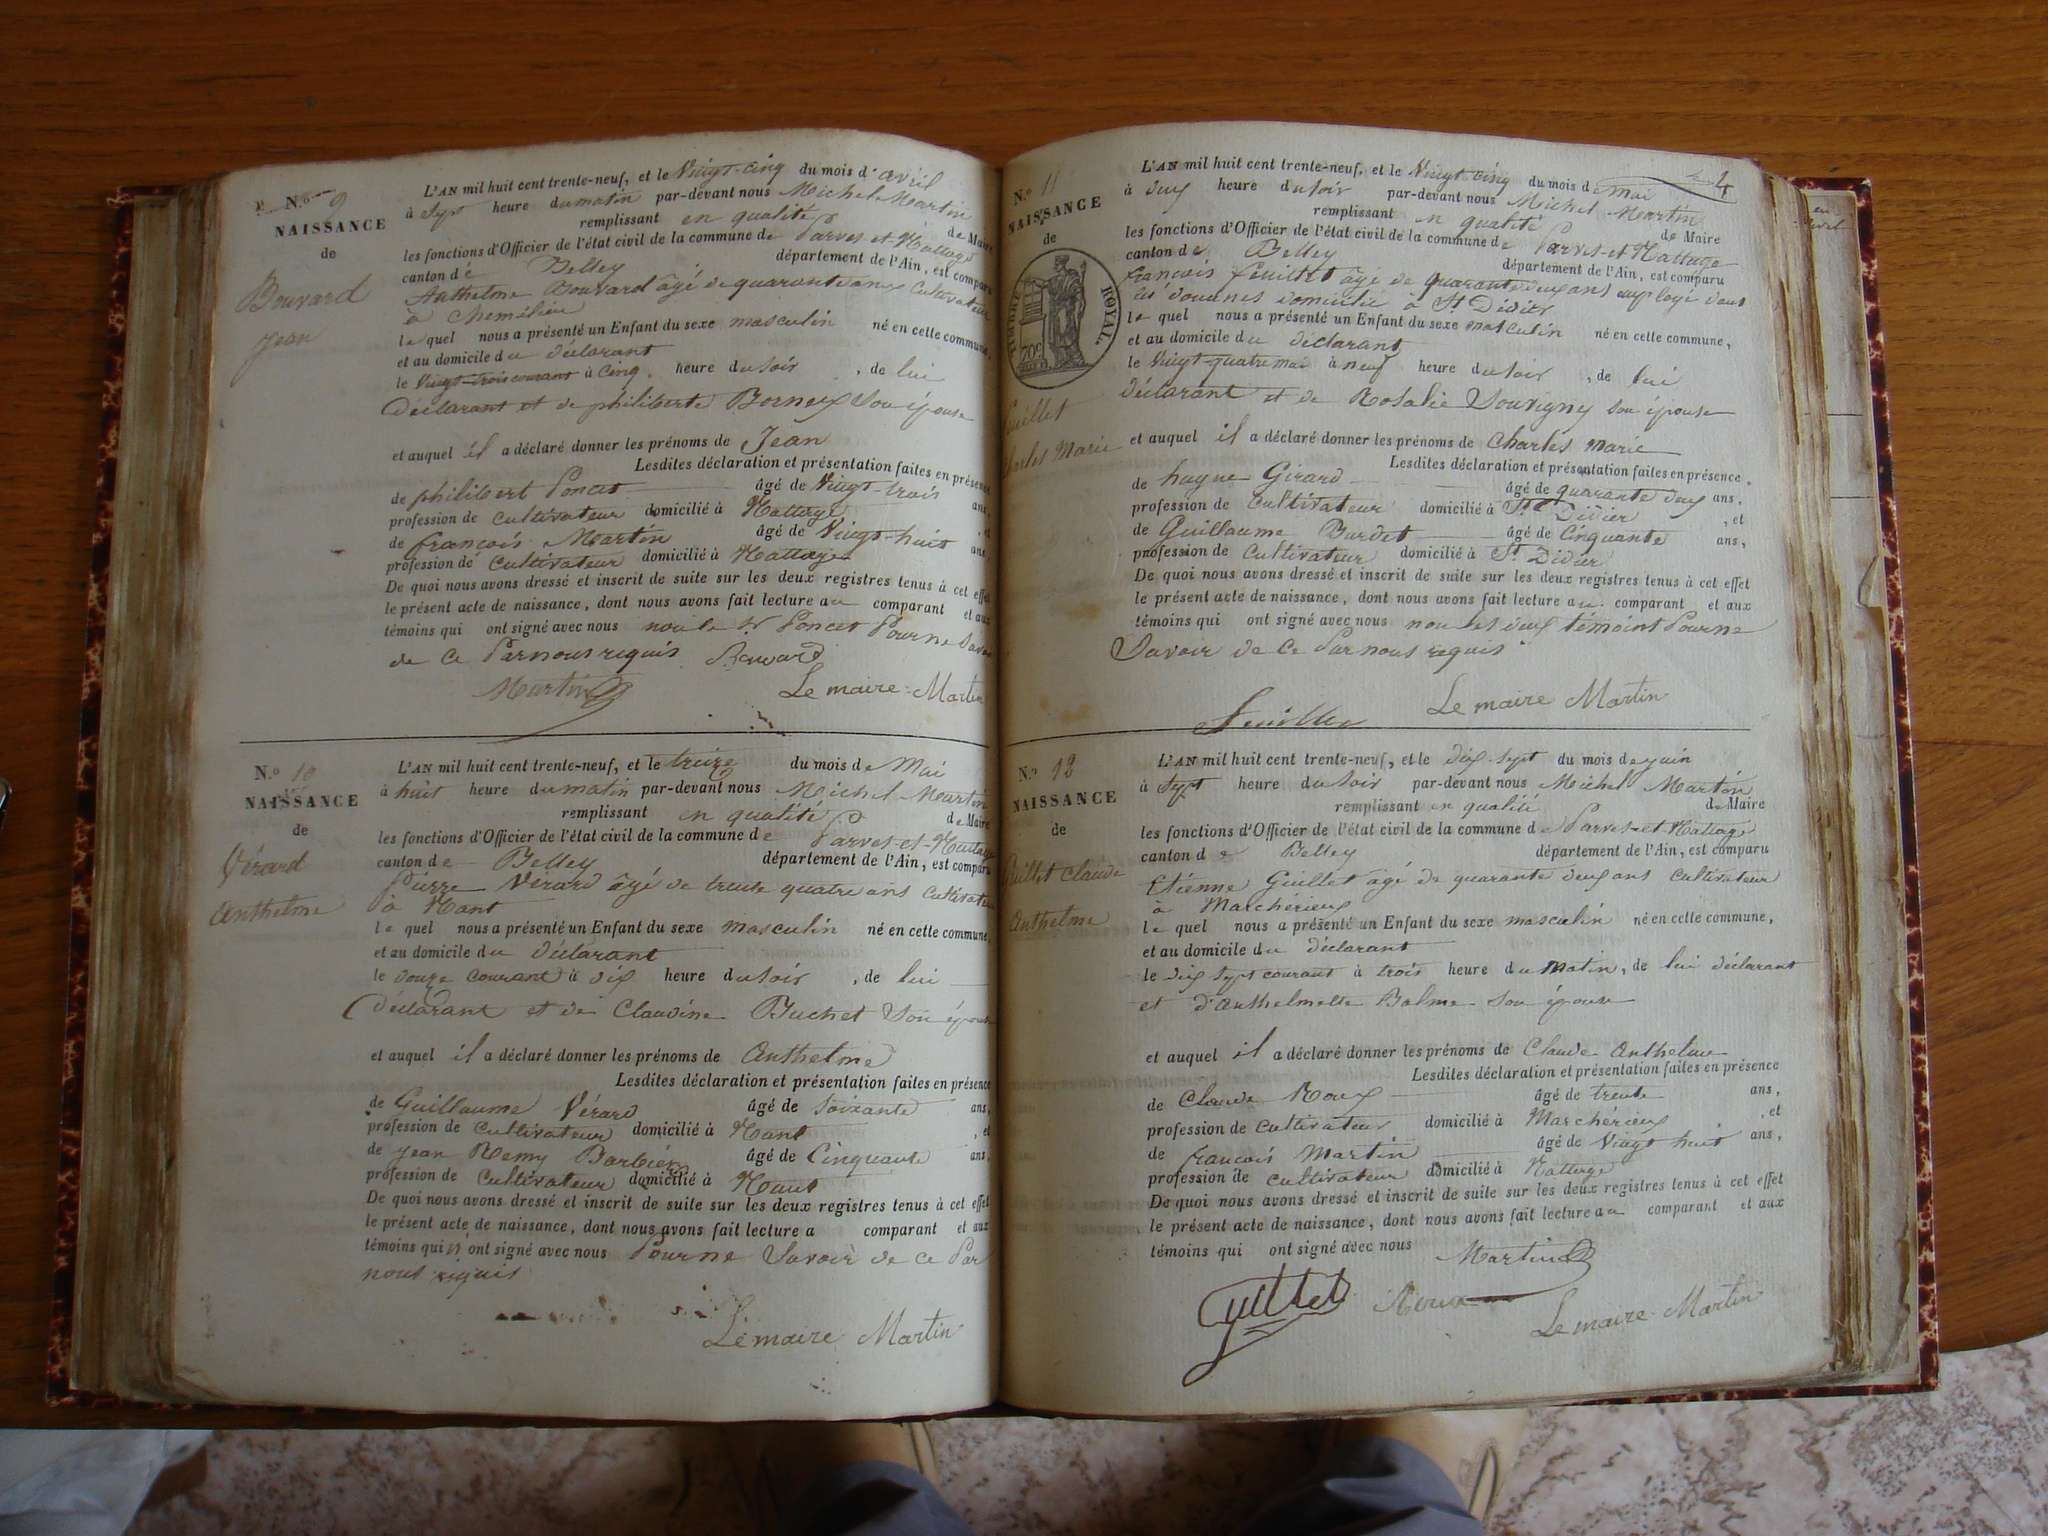 N.o 9
NAISSANCE
de
Bouvard
Jean
L'AN mil huit cent trente-neuf, et le Vingt-cinq du mois d'avril
à Sept heure du matin par-devant nous Michel Martin
remplissant en qualité de Maire
les fonctions d'Officier de l'état civil de la commune de Parves-et-Nattage
canton de Belley département de l'Ain, est comparu
Anthelme Bouvard âgé de quarante ans Cultivateur
à Chemilieu
lequel nous a présenté un Enfant du sexe masculin né en cette commune,
et au domicile du déclarant
le Vingt-trois courant à Cinq heure du soir, de lui
déclarant et de philiberte Borney Son épouse
et auquel il a déclaré donner les prénoms de Jean
Lesdites déclaration et présentation faites en présence
de philibert Poncet âgé de Vingt-trois ans,
profession de Cultivateur domicilié à Nattage, et
de françois Martin âgé de Vingt-huit ans,
profession de Cultivateur domicilié à Nattage
De quoi nous avons dressé et inscrit de suite sur les deux registres tenus à cet effet
le présent acte de naissance, dont nous avons fait lecture au comparant et aux
témoins qui ont signé avec nous non le Sr Poncet Pour ne Savoir
de Ce Par nous requis Bouvard
Martin Le maire Martin
N.o 10
NAISSANCE
de
Vérard
Anthelme
L'AN mil huit cent trente-neuf, et le treize du mois de Mai
à huit heure du matin par-devant nous Michel Martin
remplissant en qualité de Maire
les fonctions d'Officier de l'état civil de la commune de Parves-et-Nattage
canton de Belley département de l'Ain, est comparu
Pierre Vérard âgé de trente quatre ans Cultivateur
à Nant
lequel nous a présenté un Enfant du sexe masculin né en cette commune,
et au domicile du déclarant
le douze courant à dix heure du soir, de lui
déclarant et de Claudine Buchet Son épouse
et auquel il a déclaré donner les prénoms de Anthelme
Lesdites déclaration et présentation faites en présence
de Guillaume Vérard âgé de Soixante ans,
profession de Cultivateur domicilié à Nant, et
de Jean Remy Barbier âgé de Cinquante ans,
profession de Cultivateur domicilié à Nant
De quoi nous avons dressé et inscrit de suite sur les deux registres tenus à cet effet
le présent acte de naissance, dont nous avons fait lecture a comparant et aux
témoins qui n'ont signé avec nous Pour ne Savoir de Ce Par
nous requis
Le maire Martin
4
N.o 11
NAISSANCE
de
TIMBRE ROYAL.
70c
feuillet
Charles Marie
L'AN mil huit cent trente-neuf, et le Vingt-cinq du mois de mai
à deux heure du soir par-devant nous Michel Martin
remplissant en qualité de Maire
les fonctions d'Officier de l'état civil de la commune de Parves-et-Nattage
canton de Belley département de l'Ain, est comparu
françois feuillet âgé de quarante deux ans employé dans
les douanes domicilié à St Didier
lequel nous a présenté un Enfant du sexe masculin né en cette commune,
et au domicile du déclarant
le Vingt-quatre mai à neuf heure du soir, de lui
déclarant et de Rosalie Souvigny son épouse
et auquel il a déclaré donner les prénoms de Charles Marie
Lesdites déclaration et présentation faites en présence
de hugue Girard âgé de quarante deux ans,
profession de Cultivateur domicilié à St Didier, et
de Guillaume Burdet âgé de Cinquante ans,
profession de Cultivateur domicilié à St Didier
De quoi nous avons dressé et inscrit de suite sur les deux registres tenus à cet effet
le présent acte de naissance, dont nous avons fait lecture au comparant et aux
témoins qui ont signé avec nous non les deux témoins Pour ne
Savoir de Ce Par nous requis
Le maire Martin
N.o 12
NAISSANCE
de
Guillet Claude
Anthelme
L'AN mil huit cent trente-neuf, et le dix-sept du mois de juin
à Sept heure du soir par-devant nous Michel Martin
remplissant en qualité de Maire
les fonctions d'Officier de l'état civil de la commune de Parves-et-Nattage
canton de Belley département de l'Ain, est comparu
Etienne Guillet âgé de quarante deux ans Cultivateur
à Marchérieux
lequel nous a présenté un Enfant du sexe masculin né en cette commune,
et au domicile du déclarant
le dix sept courant à trois heure du matin, de lui déclarant
et d'Anthelmette Balme Son épouse
et auquel il a déclaré donner les prénoms de Claude Anthelme
Lesdites déclaration et présentation faites en présence
de Claude Roux âgé de trente ans,
profession de Cultivateur domicilié à Marchérieux, et
de françois Martin âgé de Vingt huit ans,
profession de Cultivateur domicilié à Nattage
De quoi nous avons dressé et inscrit de suite sur les deux registres tenus à cet effet
le présent acte de naissance, dont nous avons fait lecture au comparant et aux
témoins qui ont signé avec nous Martin
Guillet Roux Le maire Martin